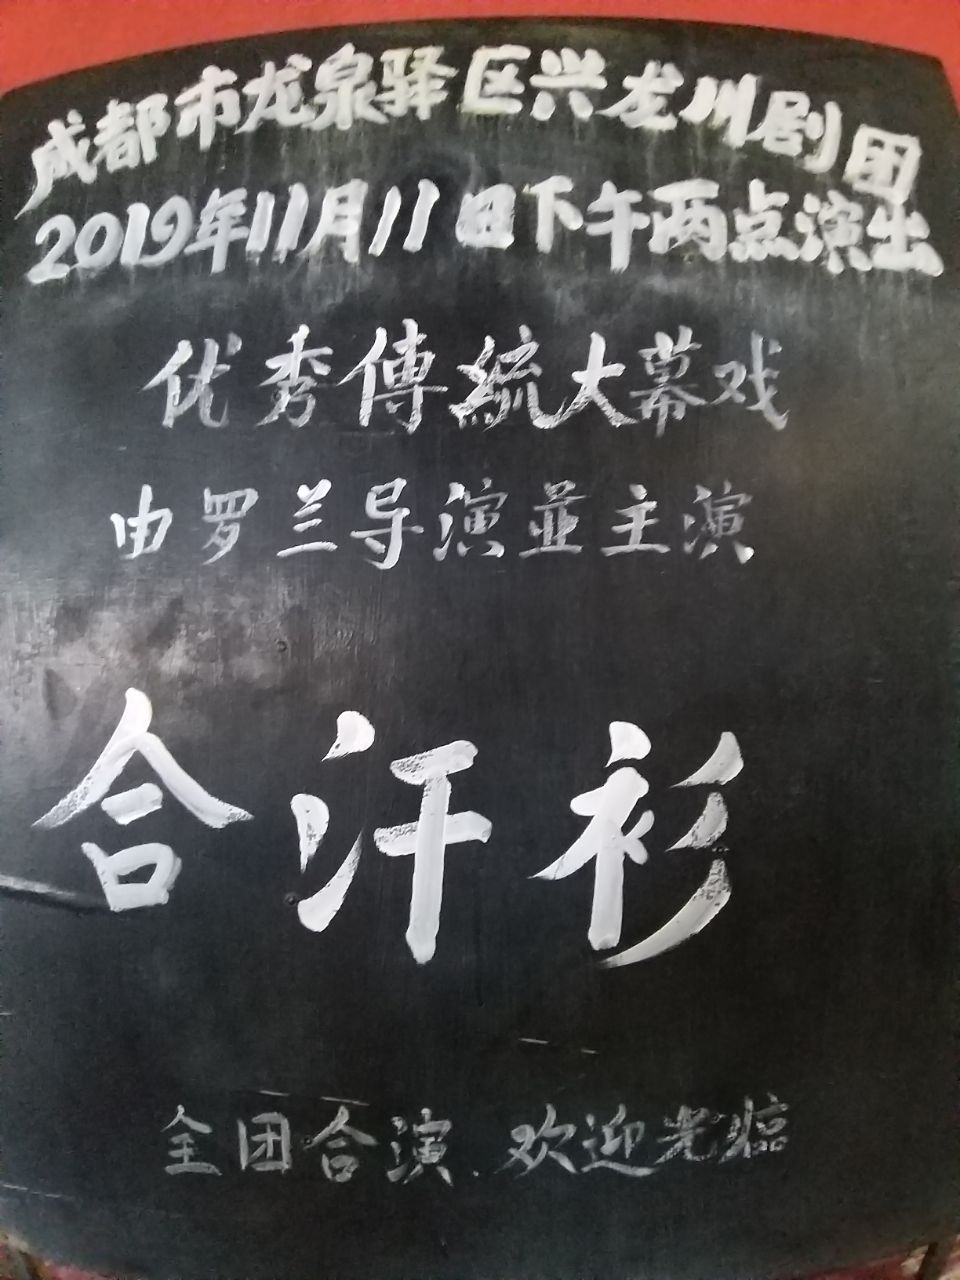 成都市龙泉驿区兴龙川剧团
2019年11月11日下午两点演出
优秀傳統大幕戏
由罗兰导演並主演
合汗衫
全团合演.欢迎光临